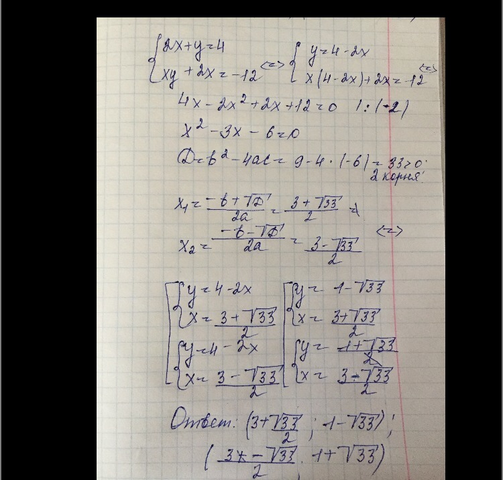 {2x+y=4 {y=4-2x
{xy+2x=-12 <=> {x(4-2x)+2x=-12 <=>
4x-2x²+2x+12=0 |:(-2)
x²-3x-6=0
D=b²-4ac=9-4·(-6)=33>0.
2 корня.
x₁=(-b+√D)/2a=(3+√33)/2
x₂=(-b-√D)/2a=(3-√33)/2 <=>
[{y=4-2x [{y=1-√33
{x=(3+√33)/2 {x=(3+√33)/2
{y=4-2x {y=1+√33
{x=(3-√33)/2 {x=(3-√33)/2
Ответ: ((3+√33)/2; 1-√33);
((3-√33)/2; 1+√33)